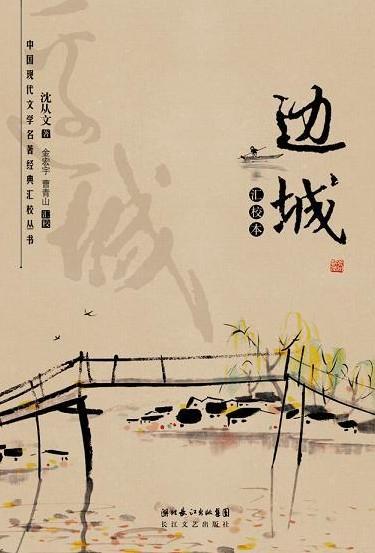 中国现代文学名著经典汇校丛书
沈从文 著
金宏宇 曹青山 汇校
边城
边城
汇校本
湖北长江出版集团
长江文艺出版社